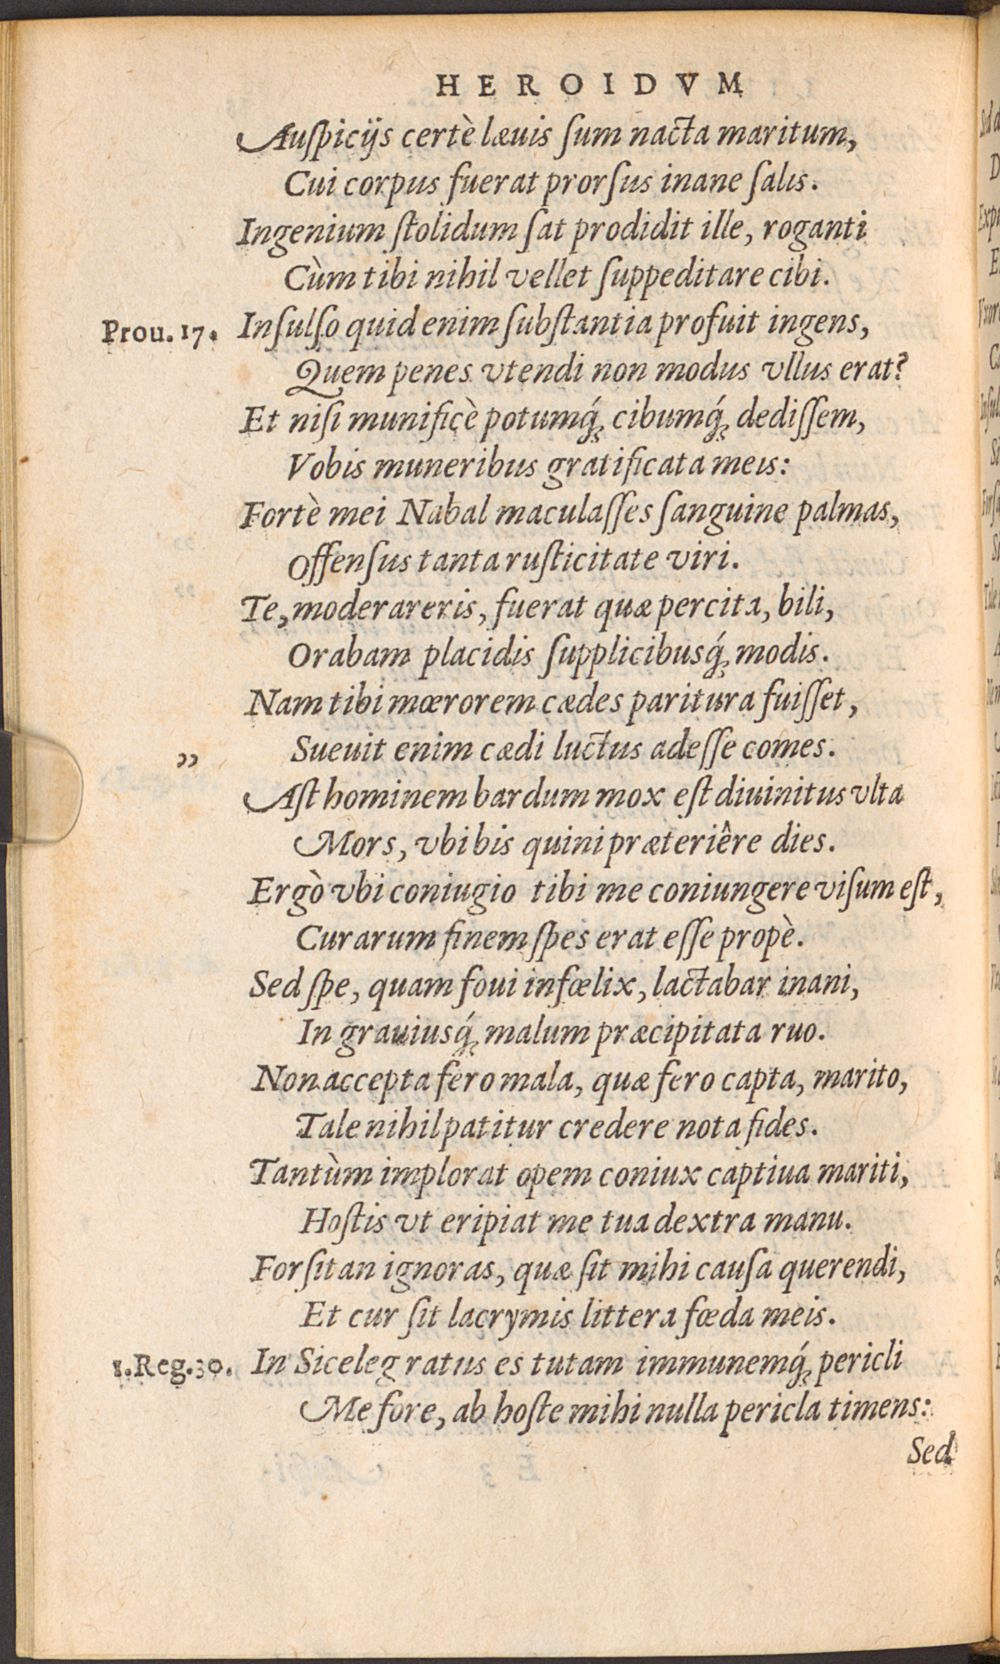 HEROIDVM
Auſpicijs certè lævis ſum nacta maritum,
Cui corpus fuerat prorſus inane ſalis.
Ingenium ſtolidum ſat prodidit ille, roganti
Cùm tibi nihil vellet ſuppeditare cibi.
Prou. 17. Inſulſo quid enim ſubſtantia profuit ingens,
Quem penes vtendi non modus vllus erat?
Et niſi munificè potumq́; cibumq́; dediſſem,
Vobis muneribus gratificata meis:
Fortè mei Nabal maculaſſes ſanguine palmas,
Offenſus tanta ruſticitate viri.
Te, moderareris, fuerat quæ percita, bili,
Orabam placidis ſupplicibusq́; modis.
Nam tibi mœrorem cædes paritura fuiſſet,
„ Sueuit enim cædi luctus adeſſe comes.
Aſt hominem bardum mox eſt diuinitus vlta
Mors, vbi bis quini præteriêre dies.
Ergò vbi coniugio tibi me coniungere viſum eſt,
Curarum finem ſpes erat eſſe propè.
Sed ſpe, quam foui infœlix, lactabar inani,
In grauiusq́; malum præcipitata ruo.
Non accepta fero mala, quæ fero capta, marito,
Tale nihil patitur credere nota fides.
Tantùm implorat opem coniux captiua mariti,
Hoſtis vt eripiat me tua dextra manu.
Forſitan ignoras, quæ ſit mihi cauſa querendi,
Et cur ſit lacrymis littera fœda meis.
1.Reg.30. In Siceleg ratus es tutam immunemq́; pericli
Me fore, ab hoſte mihi nulla pericla timens:
Sed